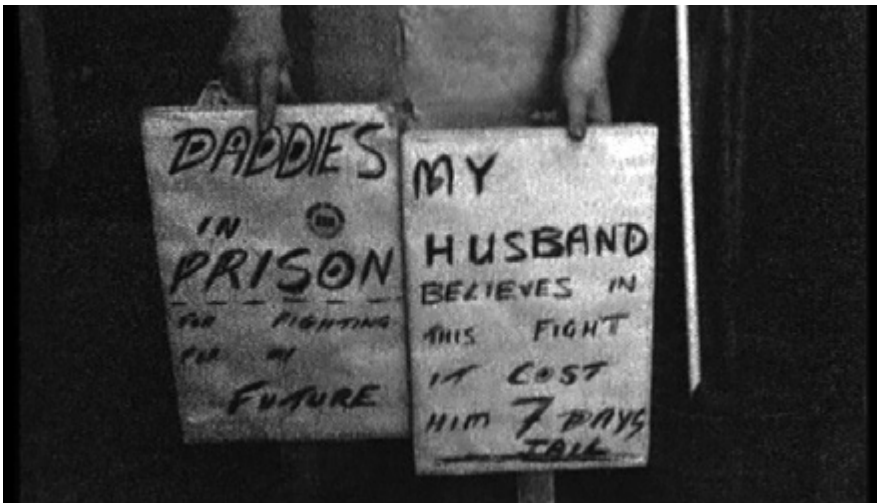 DADDIES
IN
PRISON
FOR FIGHTING
FOR MY
FUTURE
MY
HUSBAND
BELIEVES IN
THIS FIGHT
IT COST
HIM 7 DAYS
JAIL